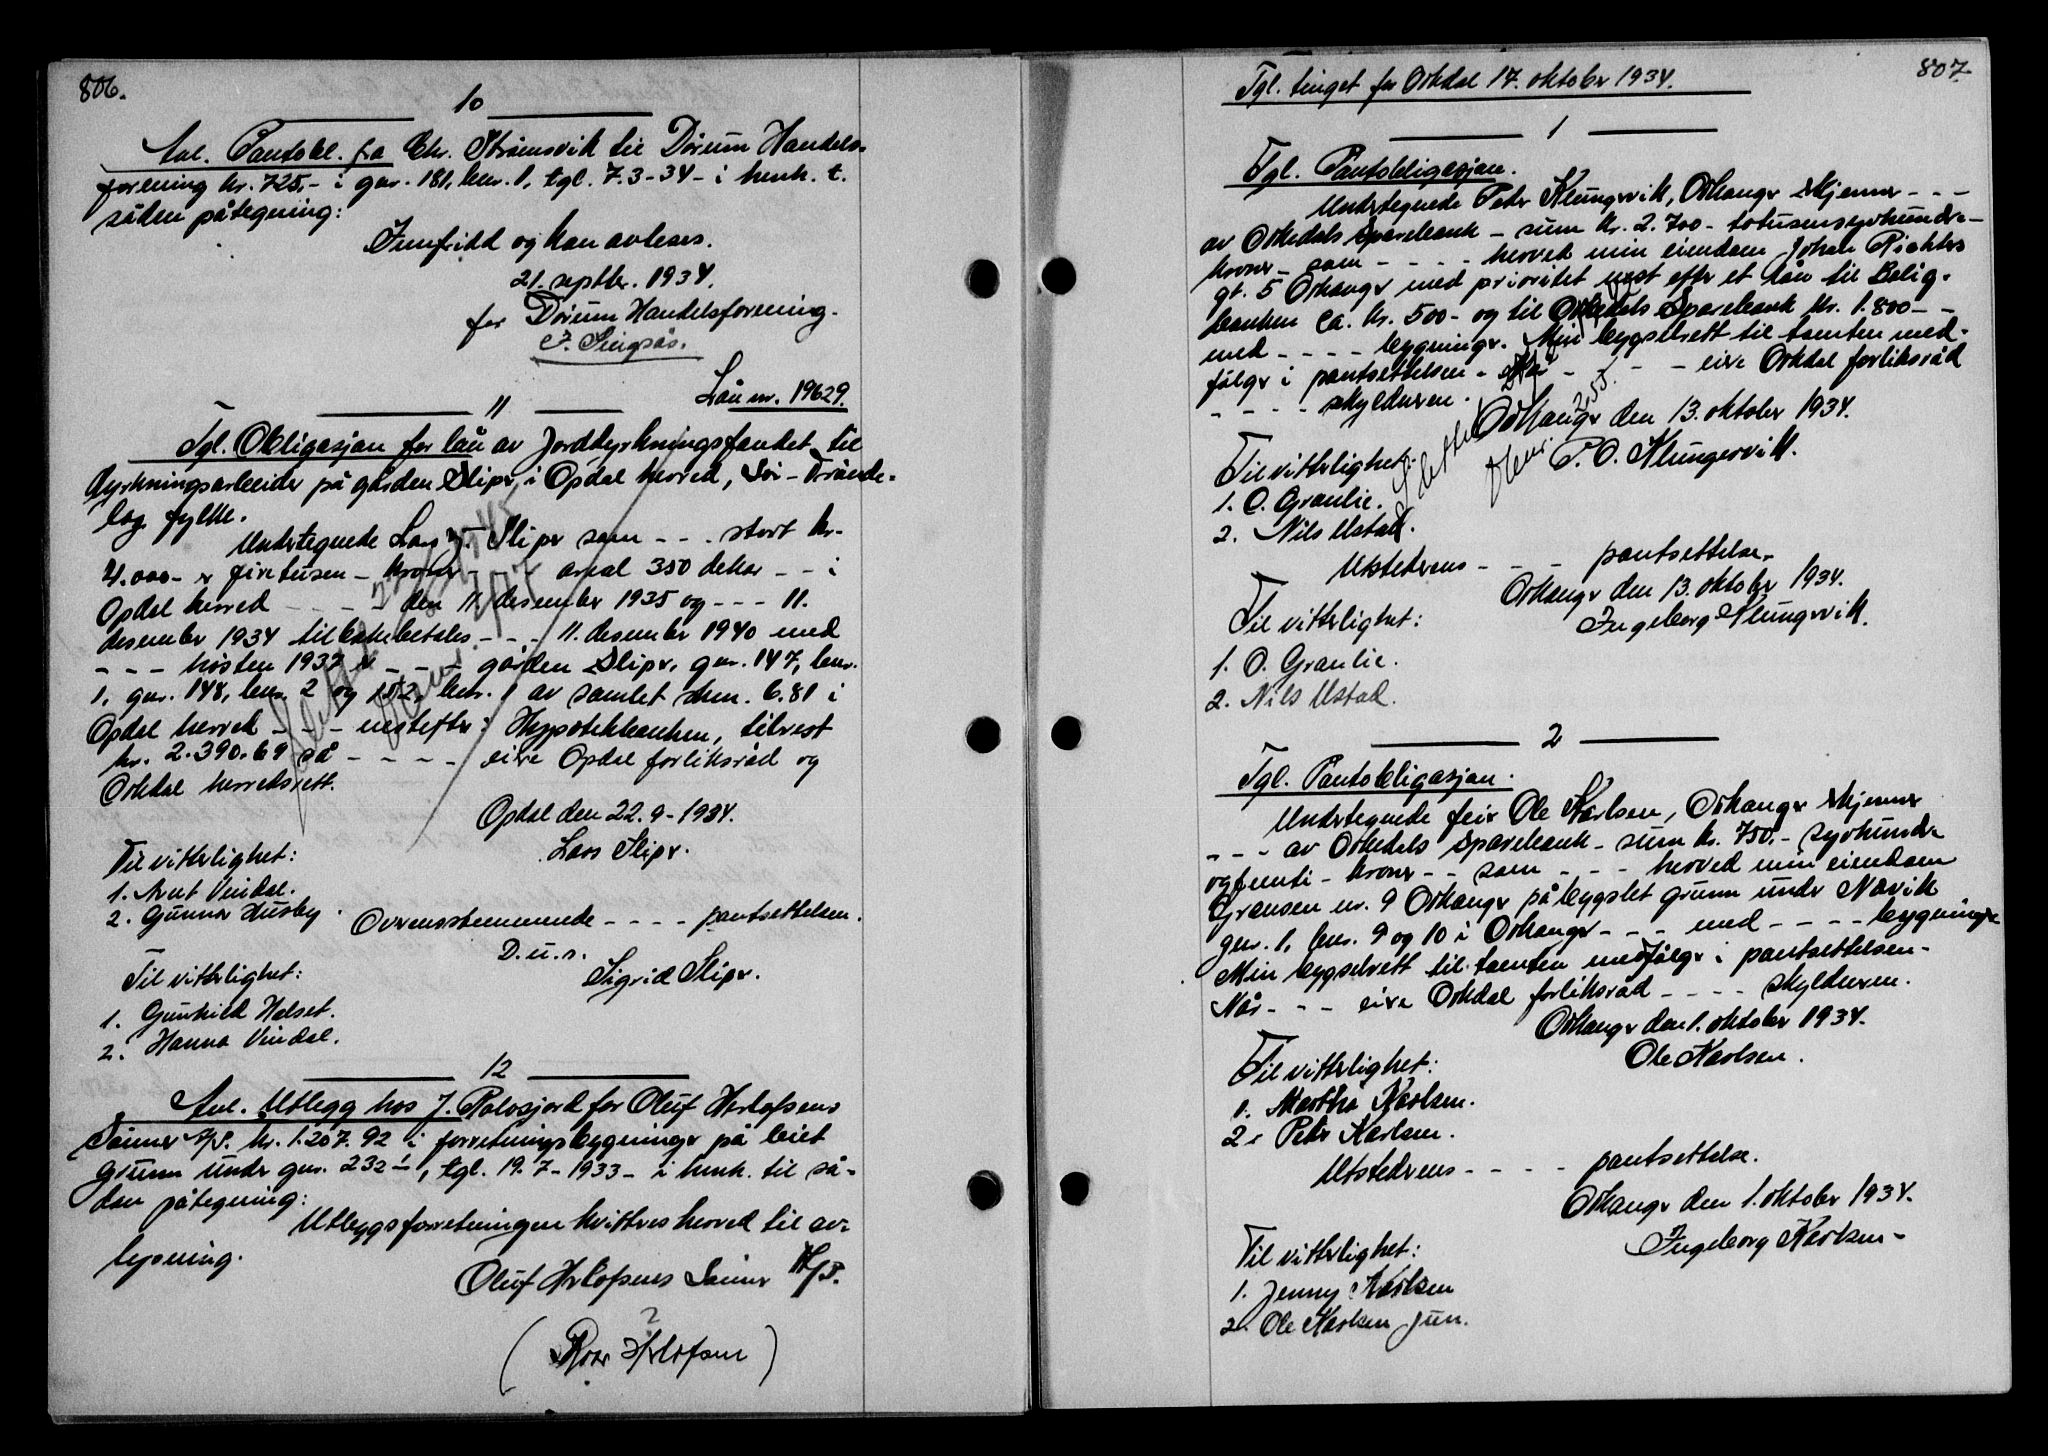 806.
10
Avl. Pantobl. fra Chr. Strömsvik til Dörum Handels-
forening kr. 725,- i gnr. 181, bnr. 1, tgl. 7.3-34- i henh. t.
sådan påtegning:
Innfridd og kan avleses.
21. septbr. 1934.
for Dörum Handelsforening.
J. Singsås.
Lån nr. 19629.
11
Tgl. Obligasjon for lån av Jordbyrkningsfondet til
dyrkningsarbeider på gården Sliper i Opdal herred, Sör-Trönde-
lag fylke.
Undertegnede Lars J. Sliper som - - - stort kr.
4.000- er firetusen - kroner - - - areal 350 dekar - - i
Opdal herred - - - - den 11. desember 1935 og - - - 11.
desember 1934 tilbakebetales - - - 11. desember 1940 med
- - - hösten 1937 - - - - gården Sliper, gnr. 147, bnr.
1, gnr. 148, bnr. 2 og 152, bnr. 1 av samlet skm. 6.81 i
Opdal herred - - - nestefter: Hypotekbanken, tilrest
kr. 2.390.69 så - - - - eire Opdal forliksråd og
Orkdal herredsrett.
Opdal den 22.9-1934.
Lars Sliper.
Til vitterlighet:
1. Arnt Vindal.
2. Gunnar Husby.
Overensstemmende - - - - pantsettelsen.
D.u.s.
Sigrid Sliper.
Til vitterlighet:
1. Gunhild Halset.
2. Hanna Vindal.
12
Avl. Utlegg hos J. Polosjord for Oluf Herlofsens
Sönner A/S. kr. 1.207.92 i forretningsbygninger på leiet
grunn under gnr. 232/1, tgl. 19.7-1933- i henh. til så-
dan påtegning:
Utleggsforretningen kvitteres herved til av-
lysning.
Oluf Herlofsens Sönner A/S.
?
(Roar Herlofsen)
807.
Tgl. tinget for Orkdal 17. oktober 1934.
1
Tgl. Pantobligasjon.
Undertegnede Peder Klungervik, Orkanger erkjenner - - -
av Orkedals Sparebank - sum kr. 2.700- totusensyvhundre-
kroner - som - - - - herved min eiendom Johan Richters
gt. 5 Orkanger med prioritet nest efter et lån til Bolig-
banken ca. kr. 500- og til Orkedals Sparebank kr. 1.800- -
med - - - - bygninger. Min bygselrett til tomten med-
fölger i pantsettelsen - Når - - - - eire Orkdal forliksråd
- - - - skylderen.
Orkanger den 13. oktober 1934.
P. O. Klungervik.
Til vitterlighet:
1. O. Granlie.
2. Nils Ustad.
Utstederens - - - - pantsettelse.
Orkanger den 13. oktober 1934.
Ingeborg Klungervik.
Til vitterlighet:
1. O. Granlie.
2. Nils Ustad.
2
Tgl. Pantobligasjon.
Undertegnede feier Ole Karlsen, Orkanger erkjenner
- - - av Orkedals Sparebank - sum kr. 750.- syvhundre
ogfemti - kroner - - som - - - herved min eiendom
Grensen nr. 9 Orkanger på bygslet grunn under Navik
gnr. 1, bnr. 9 og 10 i Orkanger - - - med - - - - bygninger
Min bygselrett til tomten medfölger i pantsettelsen -
Når - - - eire Orkdal forliksråd - - - - skylderen.
Orkanger den 1. oktober 1934.
Ole Karlsen.
Til vitterlighet:
1. Martha Karlsen.
2. Peder Karlsen.
Utstederens - - - - pantsettelse.
Orkanger den 1. oktober 1934.
Ingeborg Karlsen-
Til vitterlighet:
1. Jenny Karlsen
2. Ole Karlsen jun.